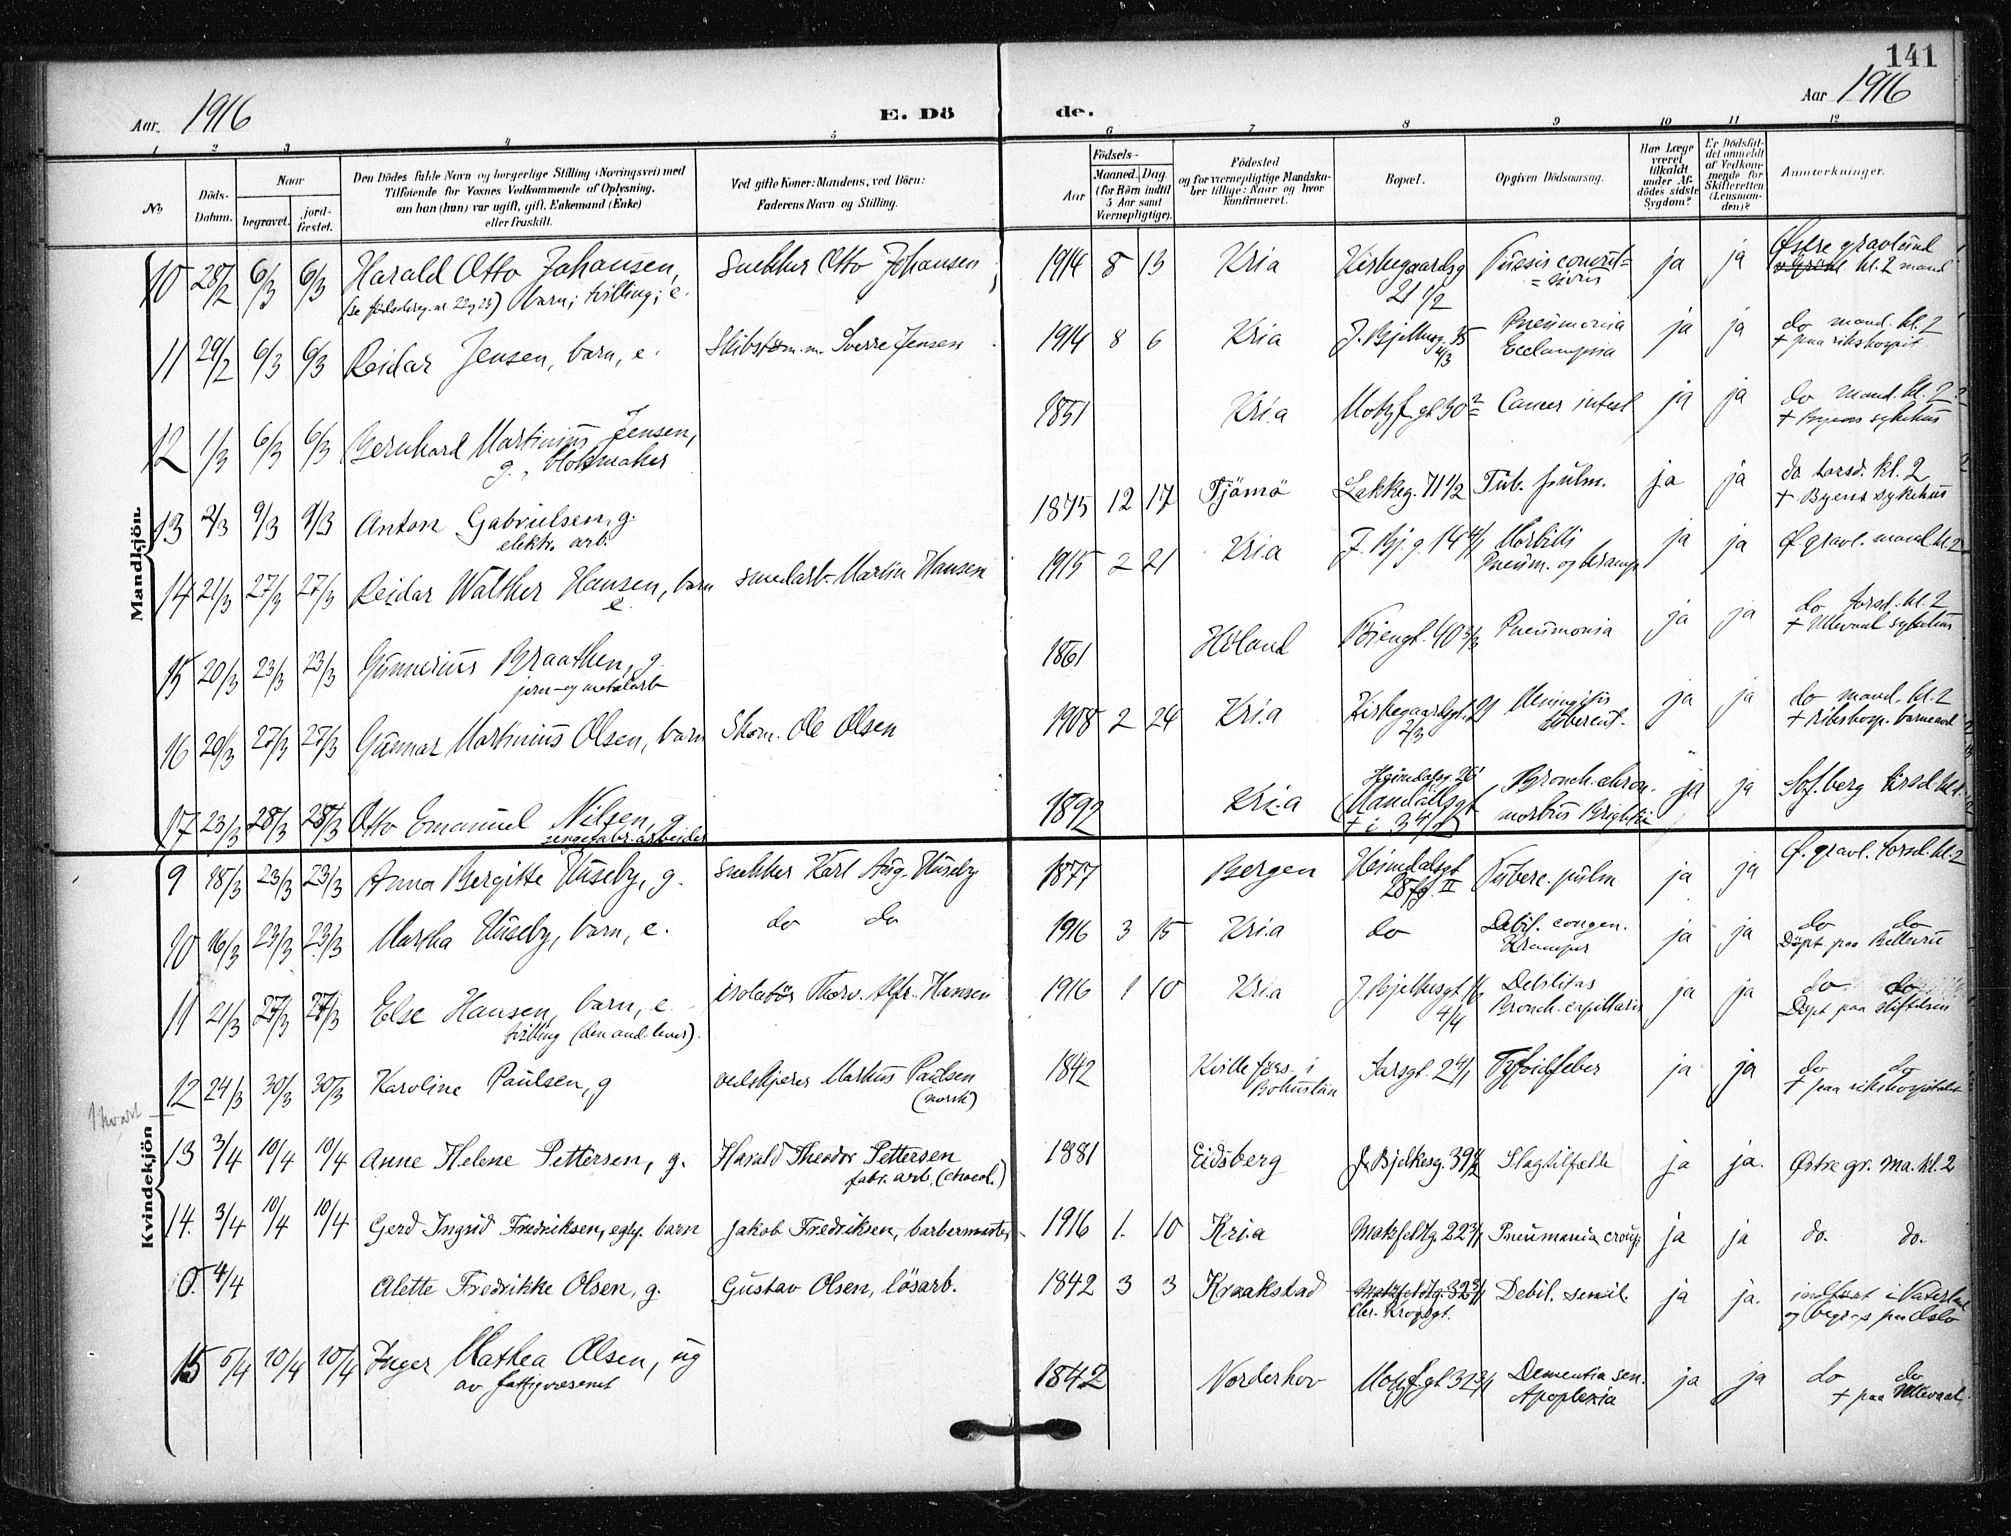 141
Aar. 1916 E. Dö de. Aar 1916
1 2 3 4 5 6 7 8 9 10 11 12
No.
Döds-Datum.
Naar
begravet.
jord-fæstet.
Den Dödes fulde Navn og borgerlige Stilling (Næringsvei) med
Tilföiende for Voxnes Vedkommende af Oplysning,
om han (hun) var ugift, gift, Enkemand (Enke)
eller fraskilt.
Ved gifte Koner: Mandens, ved Börn:
Faderens Navn og Stilling.
Födsels-
Aar
Maaned. Dag
(for Börn indtil
5 Aar samt
Værnepligtige).
Födested
og for værnepligtige Mandska-
ber tillige: Naar og hvor
konfirmeret.
Bopæl.
Opgiven Dödsaarsag.
Har Læge
været
tilkaldt
under Af-
dödes sidste
Sygdom?
Er Dödsfal-
det anmeldt
af Vedkom-
mende for
Skifteretten
(Lensman-
den)?
Anmærkninger.
Mandkjön.
10 28/2 6/3 6/3 Harald Otto Johansen, Snekker Otto Johansen 1914 8 13 Kria Kirkegaardsg ja ja Østre gravlund
barn; tvilling; e. 21 1/2 kl. 2 mand
11 29/2 6/3 6/3 Reidar Jensen, barn, e. Sverre Jensen 1914 8 6 Kria Pneumonia ja ja do mand. kl. 2
Eclampsia + paa rikshospit
12 1/3 6/3 6/3 Bernhard Martinius Jensen, 1851 Kria Motzf.gt 30 Cancer intest ja ja do mand. kl. 2
g., blokmaker + Byens sykehus
13 2/3 9/3 9/3 Anton Gabrielsen, g. 1875 12 17 Tjömö Lakkeg. 71 1/2 Tub. pulm. ja ja do torsd. kl. 2
elektr. arb. + Byens sykehus
14 21/3 27/3 27/3 Reidar Walther Hansen, barn smedarb. Martin Hansen 1915 2 21 Kria Morbilli ja ja Ø. gravl. mand kl. 2
e. Pneum. og
15 20/3 23/3 23/3 Gunnerius Braathen, g. 1861 Höland Töiengt. 40 3/3 Pneumonia ja ja do torsd. kl. 2
jern- og metalarb + Ullevaal sykehus
16 20/3 27/3 27/3 Gunnar Martinius Olsen, barn Skom. Ole Olsen 1908 2 24 Kria Kirkegaardsgt. 21 Meningitis ja ja do mand. kl. 2
2/3 tubercul. + rikshosp. barneavd
17 23/3 28/3 28/3 Otto Emanuel Nilsen, g. 1892 Kria Heimdalsg. 26 Bronch. chron. ja ja Sof.berg tirsd. kl. 1
sengefabr. arbeider morbus Brightii
Kvindekjön
9 15/3 23/3 23/3 Anna Bergitte Huseby, g. snekker Karl Aug. Huseby 1877 Bergen Heimdalsgt Tuberc. pulm ja ja Ø. gravl. torsd. kl. 2
10 16/3 23/3 23/3 Martha Huseby, barn, e. do do 1916 3 15 Kria do Debil. congen. ja ja do do
Kramper Döpt paa
11 21/3 27/3 27/3 Else Hansen, barn, e. isolatör Thorv. Alfr. Hansen 1916 1 10 Kria Debilitas ja ja do do
tvilling (den and. lever). 4/4 Bronch. capillaris Döpt paa stiftelsen
12 24/3 30/3 30/3 Karoline Paulsen, g vedskjærer Markus Paulsen 1842 Kville förs. i Sarsgt. 2 4/1 Tyfoidfeber ja ja do do
(norsk) Bohuslän + paa rikshospitalet
13 3/4 10/4 10/4 Anne Helene Pettersen, g. Harald Theodor Pettersen 1881 Eidsberg J. Bjelkesg. 39 Slagtilfælde ja ja. Østre gr. ma. kl. 2
fabr. arb. (chocol.)
14. 3/4 10/4 10/4 Gerd Ingrid Fredriksen, egty. barn Jakob Fredriksen, barbermester 1916 1. 10 Kria Motzfeldtg. 22 Pneumonia croup. ja ja do. do.
0. 4/4 Alette Fredrikke Olsen, g. Gustav Olsen, lösarb. 1842 3 3 Kraakstad Motzfeldtg. 32 Debil. senil. ja ja. indført i Vaterland
Chr. Kroghsgt. og begr.s paa Oslo
15 5/4 10/4 10/4 Inger Mathea Olsen, ug 1842 Norderhov Motzf.gt 32 Dementia sen. ja ja do do
av fattigvæsenet Apoplexia + paa Ullevaal